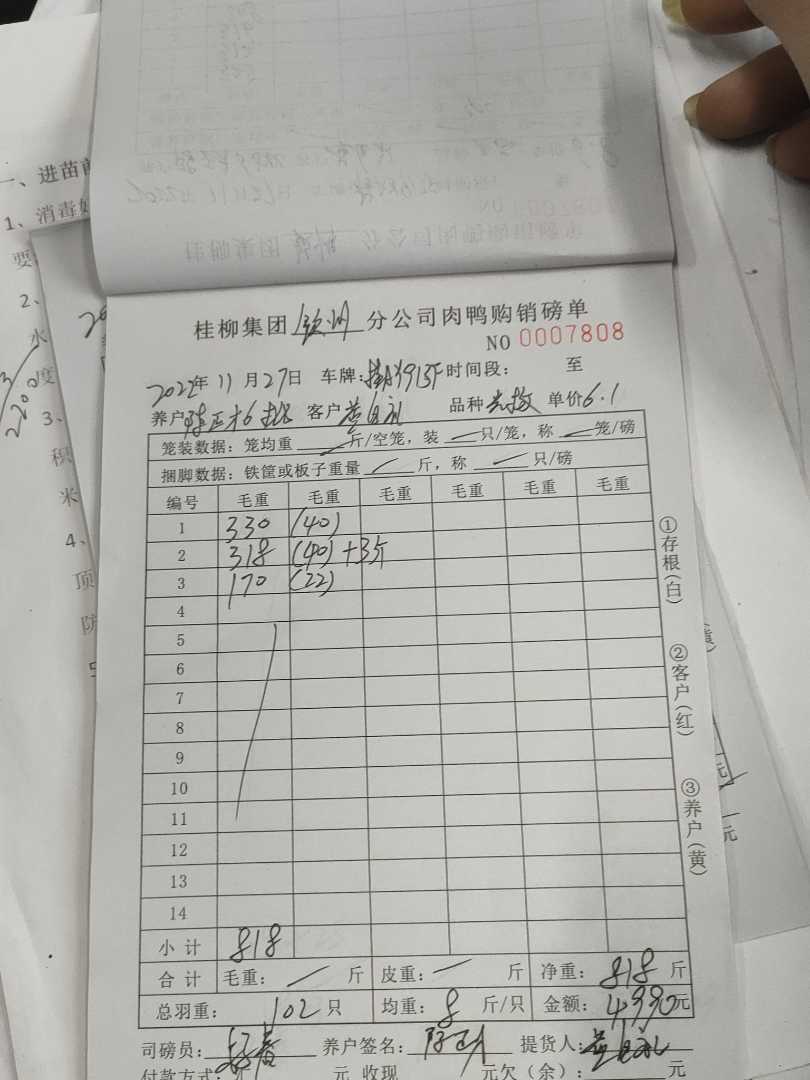 一、进苗前
1、消毒
要
2、
水
度
3、
积
米
4、
顶
防
2200
桂柳集团 钦州 分公司肉鸭购销磅单
NO 0007808
2022年 11 月 27日 车牌: 时间段: 至
养户 陈正才6批 客户 品种 单价 6.1
笼装数据: 笼均重 斤/空笼, 装 只/笼, 称 笼/磅
捆脚数据: 铁筐或板子重量 斤, 称 只/磅
编号 毛重 毛重 毛重 毛重 毛重 毛重
1 330 (40)
2 318 (40) +3斤
3 170 (22)
4
5
6
7
8
9
10
11
12
13
14
小计 818
合计 毛重: 斤 皮重: 斤 净重: 818 斤
总羽重: 102 只 均重: 8 斤/只 金额: 4990元
司磅员: 养户签名: 提货人:
付款方式: 元 收现 元欠(余): 元
①存根(白)
②客户(红)
③养户(黄)
元
元